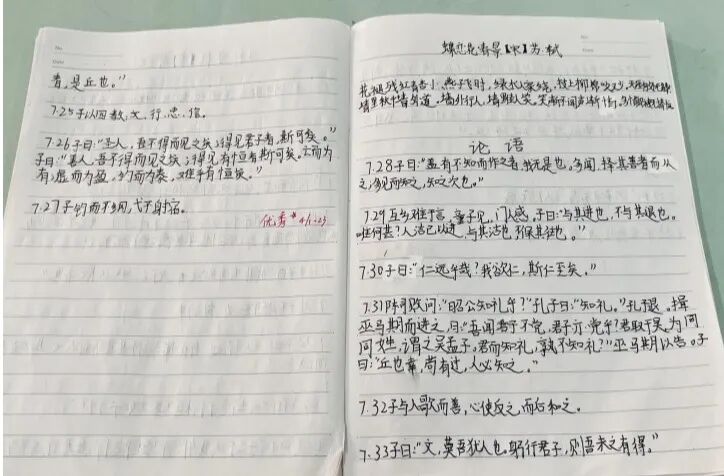 者,是丘也。"
7.25子以四教,文,行,忠,信。
7.26子曰:"圣人,吾不得而见之矣;得见君子者,斯可矣。"
子曰:"善人,吾不得而见之矣;得见有恒者斯可矣。亡而为
有,虚而为盈,约而为泰,难乎有恒矣。"
7.27子钓而不纲,弋不射宿。
优秀
No.
Date
蝶恋花春景【宋】苏轼
花褪残红青杏小,燕子飞时,绿水人家绕,枝上柳绵吹又少,天涯何处无芳草
墙里秋千墙外道,墙外行人,墙里佳人笑,笑渐不闻声渐悄,多情却被无情恼
论语
7.28子曰:"盖有不知而作之者,我无是也。多闻,择其善者而从
之,多见而知之,知之次也。"
7.29互乡难于言,童子见,门人惑,子曰:"与其进也,不与其退也。
唯何甚?人洁已以进,与其洁也,不保其往也。"
7.30子曰:"仁远乎哉?我欲仁,斯仁至矣。"
7.31陈司败问:"昭公知礼乎?"孔子曰:"知礼。"孔子退,揖
巫马期而进之,曰:"吾闻君子不党,君子亦党乎?君取于吴,为同
同姓,谓之吴孟子。君而知礼,孰不知礼?"巫马期以告。子
曰:"丘也幸,苟有过,人必知之。"
7.32子与人歌而善,必使反之,而后和之。
7.33子曰:"文,莫吾犹人也。躬行君子,则吾未之有得。"